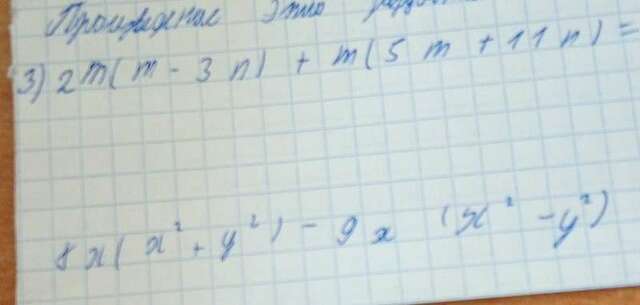 Произведение этих
3) 2m(m - 3n) + m(5m + 11n) =
8x(x² + y²) - 9x (x² - y²)